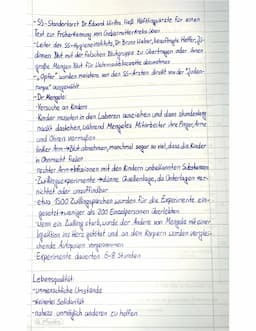 - SS-Standortarzt Dr. Eduard Wirths ließ Häftlingsärzte für einen
Test zur Früherkennung von Gebärmutterkrebs üben
- Leiter des SS-Hygieneinstituts, Dr. Bruno Weber, beauftragte Helfer,
Blut mit der falschen Blutgruppe zu übertragen oder ihnen
große Mengen Blut für abzunehmen
- „Opfer" wurden meistens von den SS-Ärzten direkt von der "Juden-
rampe" ausgesucht
- Dr. Mengele:
- Versuche an Kindern
- Kinder mussten in den Laboren ausziehen und dann stundenlang
nackt dastehen, während Mengeles Mitarbeiter ihre Finger, Arme
und Ohren vermaßen
linker Arm → Blut abnehmen, manchmal sogar so viel, dass die Kinder
in Ohnmacht fielen
rechter Arm → Infusionen mit den Kindern unbekannten Substanzen
- Zwillingsexperimente → dünne Quellenlage, da Unterlagen ver-
nichtet oder unauffindbar
- etwa 1500 Zwillingspärchen wurden für die Experimente ein-
gesetzt → weniger als 200 Einzelpersonen überlebten
- wenn ein Zwilling starb, wurde der Andere von Mengele mit einer
Injektion ins Herz getötet und an den Körpern wurden verglei-
chende Autopsien vorgenommen
- Experimente dauerten 6-8 Stunden
Lebensqualität:
- unmenschliche Umstände
- keinerlei Solidarität
- nahezu unmöglich anderen zu helfen